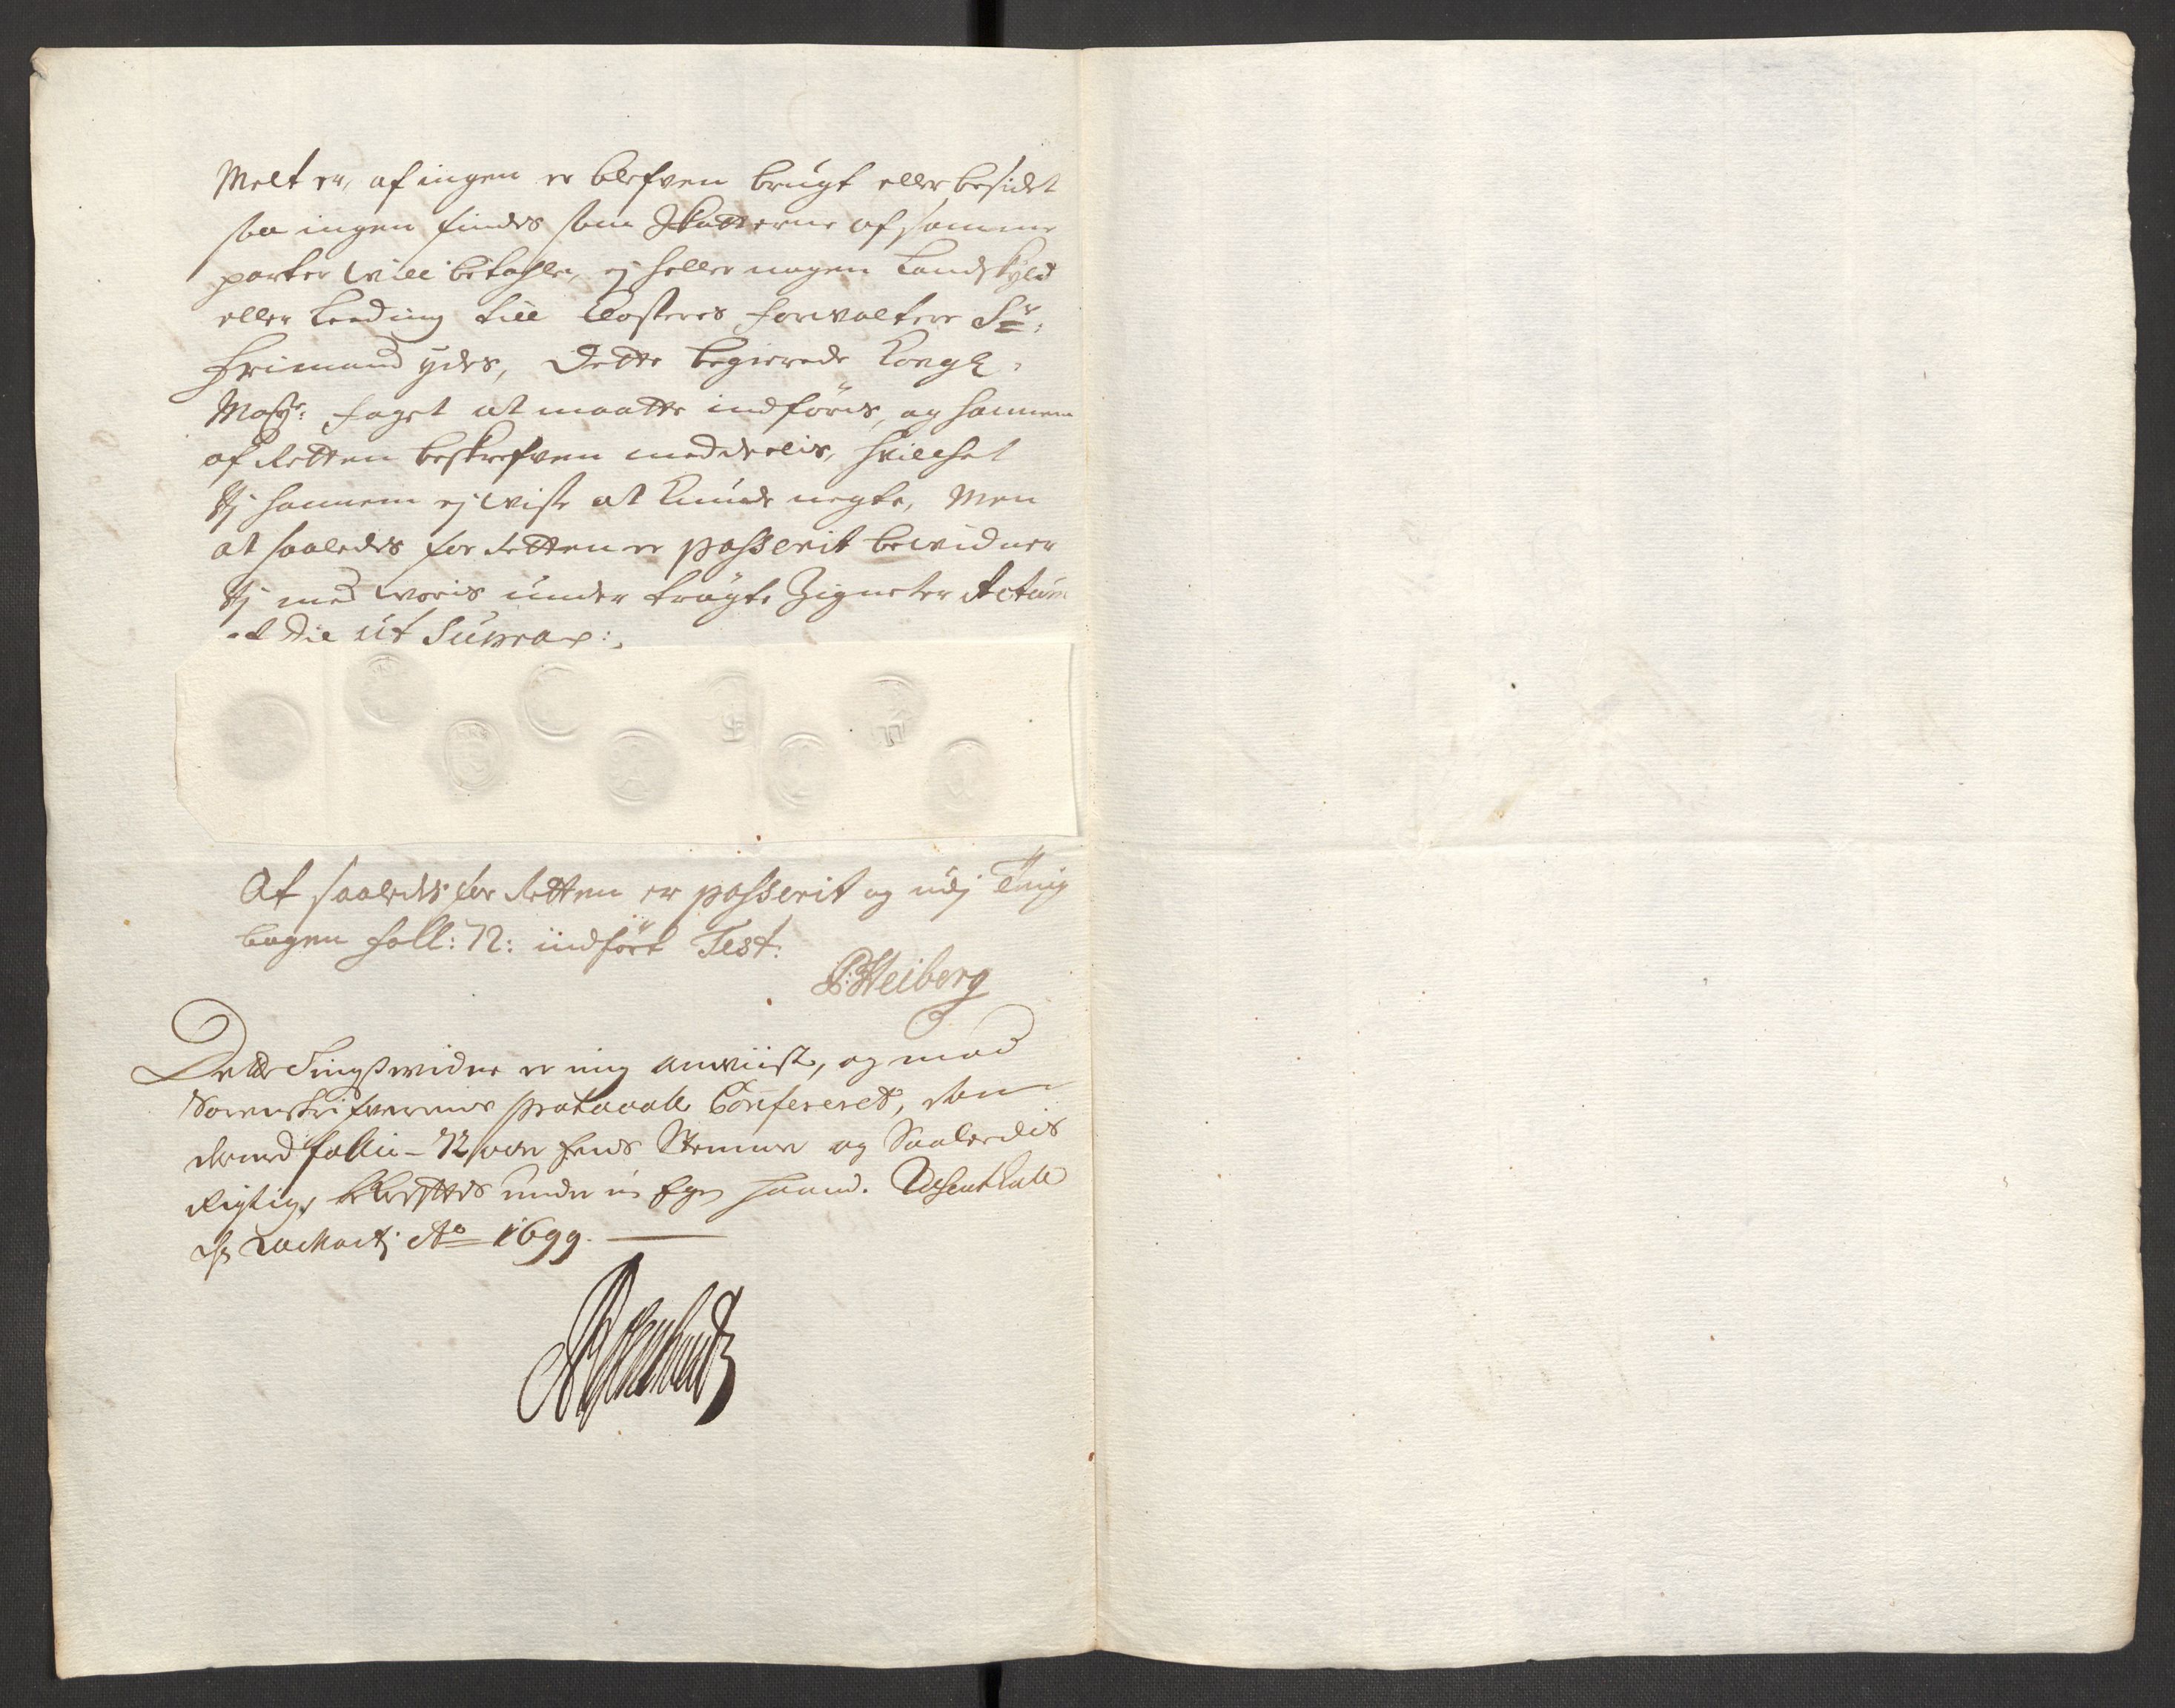 Melt er, af ingen er blefven brugt eller besidet
saa ingen findes som Skatterne af samme
parter will betahle, ej heller nogen Landskyld
eller Leeding till Closteres forvalter Sr:
Frimand ydes, Dette begierede Kongl:
Mayts: foget at maatte indføris, og hannem
af Retten beskrefven meddeelis, hvilchet
Vj hannem ej viste at kunde negte, Men
at saaledes for Retten er passerit bevidner
Vj med voris under trøgte Zigneter Actum
et die ut Supra:
At saaledes for Retten er passerit og udj Ting
bogen foll: 72: indført Test:
P: Heiberg
Dette Tingsvidne er mig anviist, og med
Sorenskrifverens protocoll Confereret, som
dermed follio - 72 over Eens Stemmer og Saaledis
Rigtig, bekreftes under min Egen haand.
Martj Ao 1699.